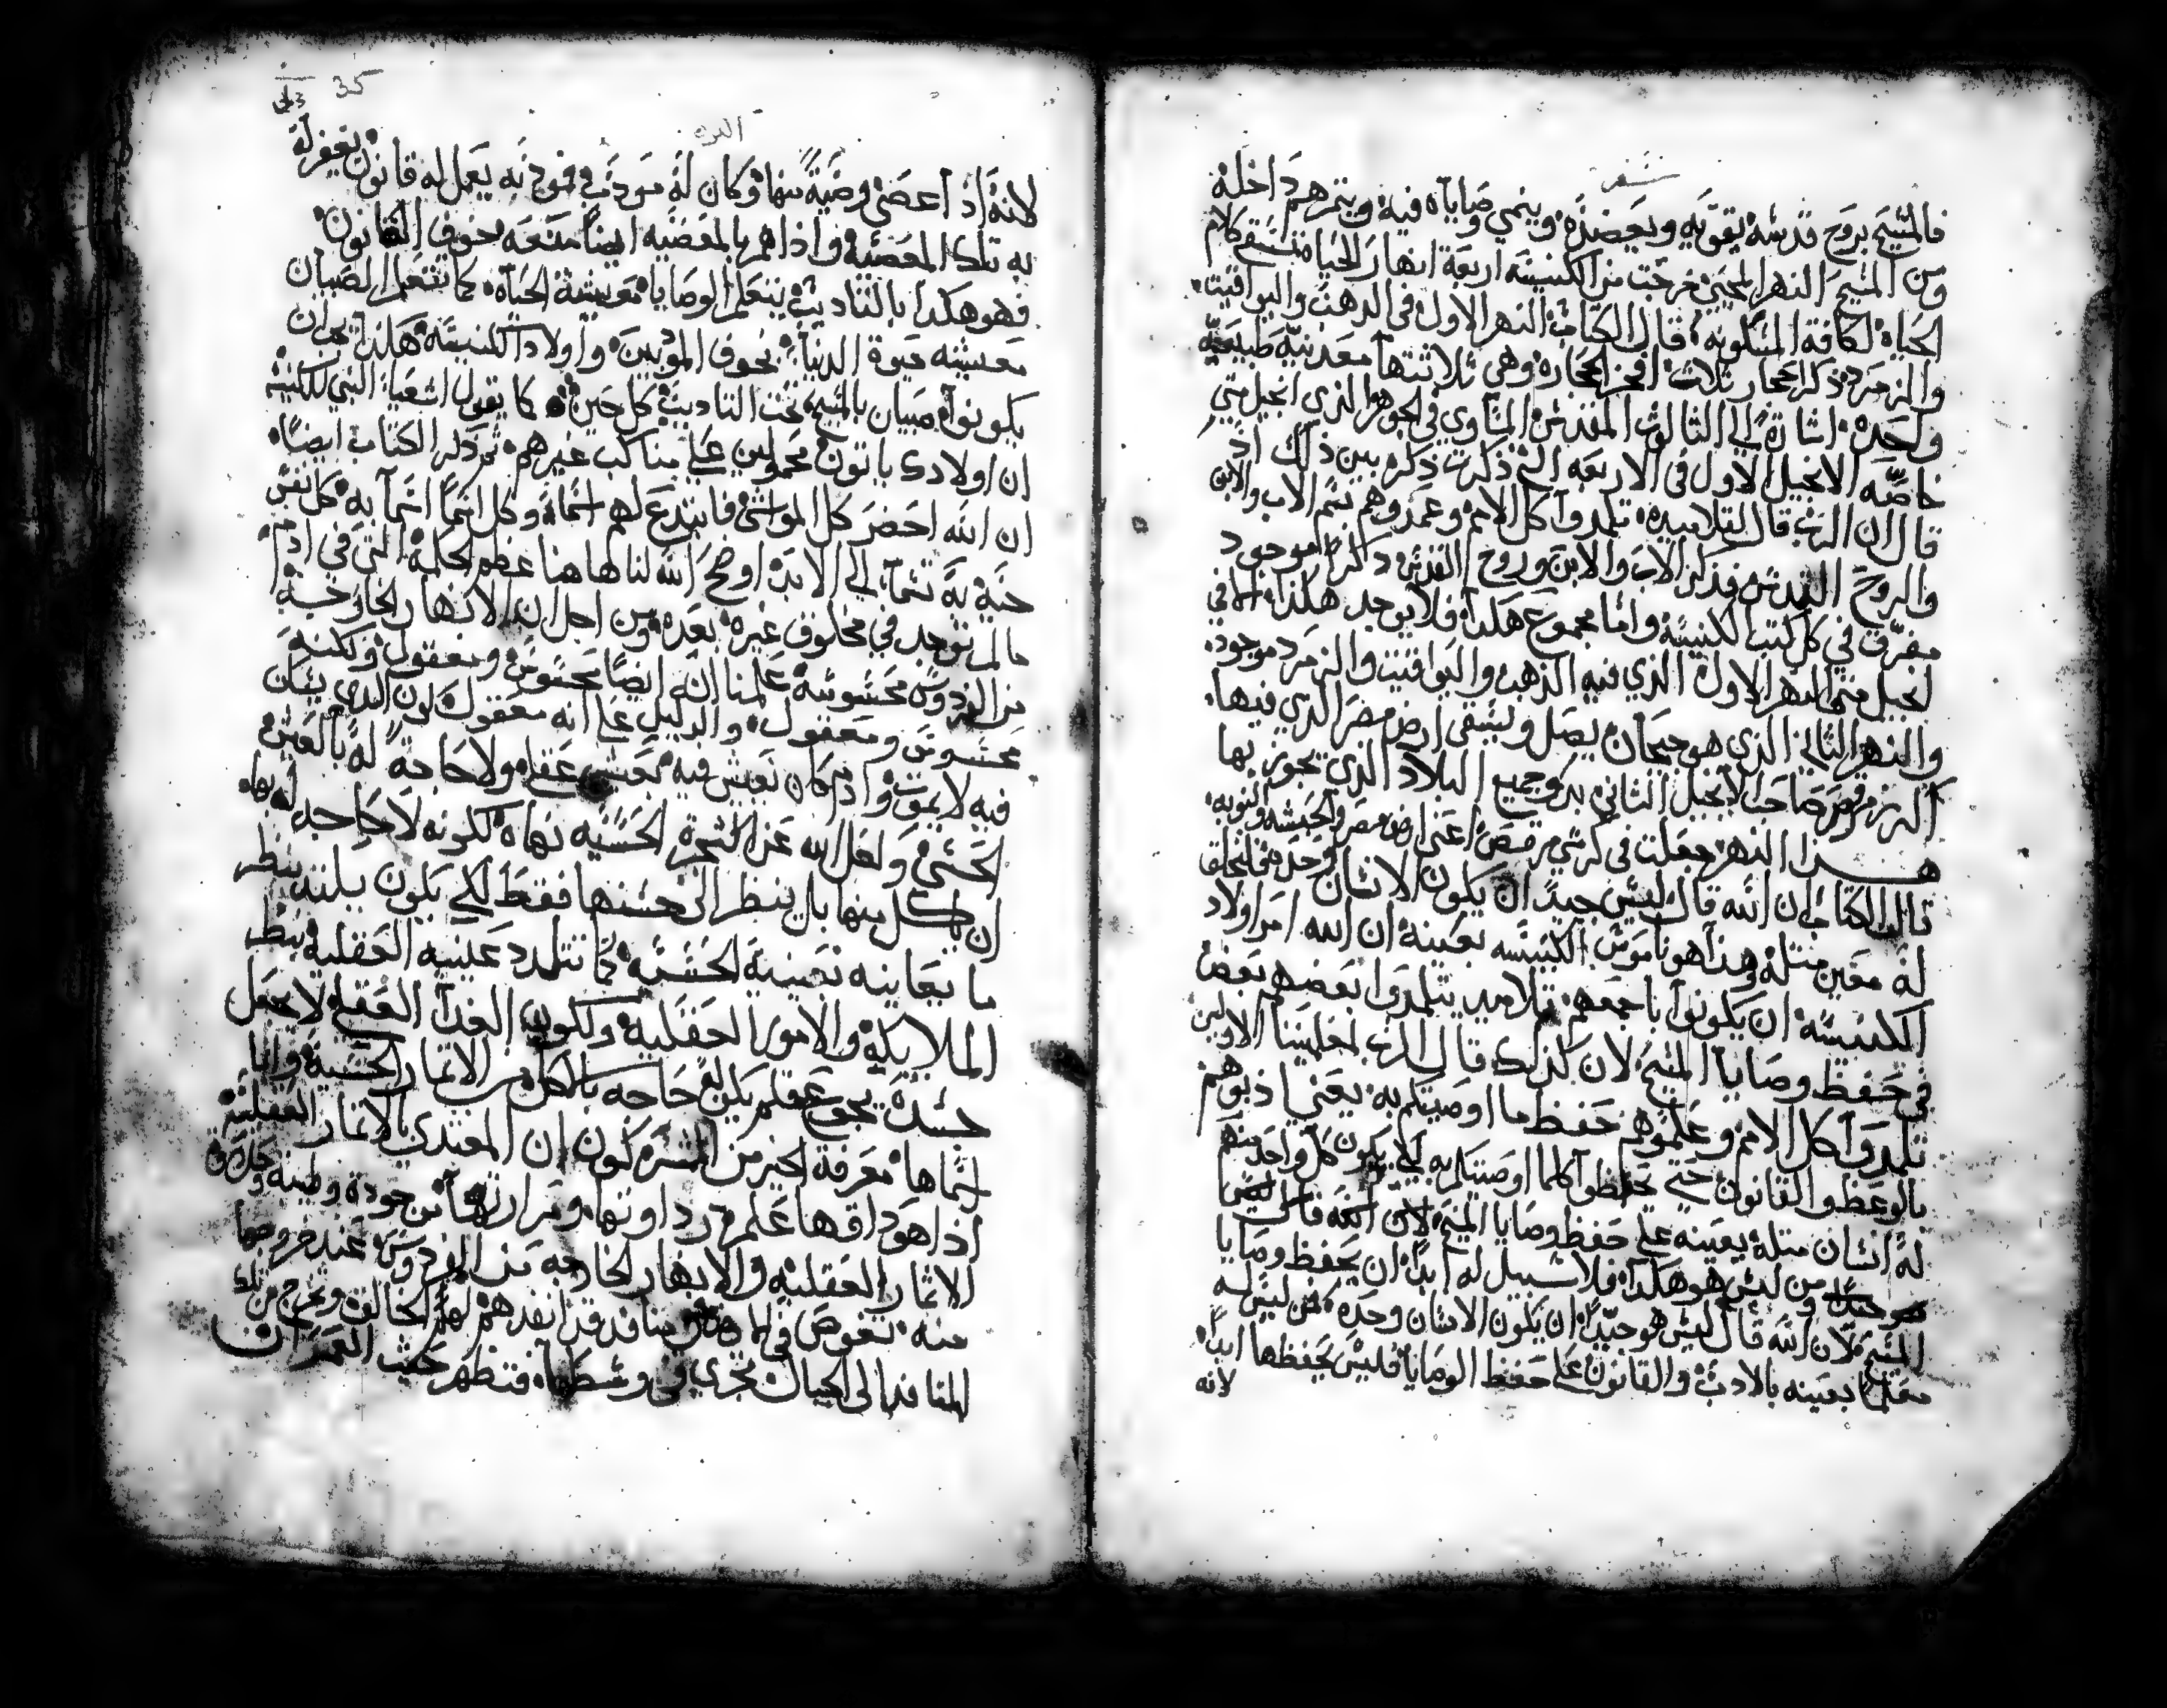 سفر
فالمسيح بروح قدسه يقويه ويعضده وينمي وصاياه فيه ويثمرهم داخله
ومن المسيح النهر المحيي خرجت من الكنيسه اربعة انهار الحياه تسقي كلام
الحياه لكافة المسكونه قال الكتاب النهر الاول في الدهب واليواقيت
والزمرد ذكر احجار ثلاث افخر الحجاره وهي ثلاثتها معدنيه طبيعيه
واحده اشاره الي التالوت المقدس المساوي في الجوهر الذي انجيل متي
خاصه الانجيل الاول في الاربعه التي ذكرت ذكره بين ذلك اذ
قال ان الرب قال لتلاميده تلمدوا كل الامم وعمدوهم بسم الاب والابن
والروح القدس فذكر الاب والابن وروح القدس ذكرا موجود
مفرق في كل كتب الكنيسه واما مجموع هكدا فلا يوجد هكذا الا في
انجيل متي النهر الاول الذي فيه الذهب واليواقيت والزمرد موجود
والنهر الثاني الذي هو جيحان يصل ويسقي ارض مصر الذي فيها
اكرز مرقص صاحب الانجيل الثاني بل وجميع البلاد الذي يجوز بها
هذا النهر جعلت في كرسي مرقص اعني ارض مصر والحبشه والنوبه
قال الكتاب ان الله قال ليس جيد ان يكون الانسان وحده فلنخلق
له معين مثله وهذا هو ناموس الكنيسه بعينه ان الله امر اولاد
الكنيسه ان يكونوا باجمعهم تلاميد يتلمدوا بعضهم بعض
في حفظ وصايا المسيح لان كذلك قال الرب لمعلمينا الاولين
تلمدوا كل الامم وعلموهم حفظ ما اوصيتكم به يعني ادبوهم
بالوعظ والقانون حتي يحفظوا كلما اوصيتكم به لكي يكون كل واحد منهم
له انسان مثله يعينه علي حفظ وصايا المسيح لان الله قال ليس
هو جيد ومن ليس هو هكدا فلا سبيل له ابدا ان يحفظ وصايا
المسيح لان الله قال ليس هو جيدا ان يكون الانسان وحده فمن ليس له
معلما يعينه بالادب والقانون علي حفظ الوصايا فليس يحفظها ابدا
لانه
35
لانه اذا عصي وصية منها وكان له مودب فمودبه يعمل له قانون يغفر له
به تلك المعصيه واذا هم بالمعصيه ايضا منعه بخوف القانون
فهو هكدا بالتاديب يتعلم الوصايا معيشة الحياه كما يتعلم الصبيان
معيشه حيوة الدنيا بخوف المودبين واولاد الكنيسه هكذا يجب ان
يكونوا صبيان بالمسيح تحت التاديب كل حين كما يقول اشعيا النبي للكنيسه
ان اولادك ياتون محمولين علي مناكب غيرهم ثم ذكر الكتاب ايضا
ان الله احضر كل المواشي فابتدع لهم اسماء وكل اسما اسما به كل نفس
حيه به تسما الي الابد اوضح الله لنا هاهنا عظم الحكمة التي في ادم
ما لم توجد في مخلوق غيره بعده ومن اجل ان الانهار الخارجة
من الفردوس محسوسة علمنا انه ايضا محسوس ومعقول ولكنه
محسوس ومعقول والدليل علي انه معقول كون الذي يسكن
فيه لا يموت وادم كان يعيش فيه بعيش عقلي ولا حاجة له بالعيش
الحسي ولعل الله عن الشجره الحسيه نهاه لكونه لا حاجه له بها
ان ياكل منها بل ينظر الي حسنها فقط لكي يكون يلتد بنظر
ما يعاينه بعينيه الحسيه كما تتلدد عينيه العقلية بنظر
الملايكه والامور العقلية ولكون الغدا العقلي لا يجعل
جسده يجوع فلم يكن له حاجه بالاكل من الاتمار الحسية وانما
اسماها معرفة الخير من الشر كون ان المعتدي بالاتمار العقلية
اذا هو داقها علم رداوتها ومرارتها من جودة وطيبة وحلاوة
الاتمار العقليه والانهار الخارجه من الفردوس عند خروجها
منه تغوص في منافد قد انفدهم لها الخالق وتخرج من تلك
المنافد الي الجبال تجري في وسطها فتظهر حيث العمران